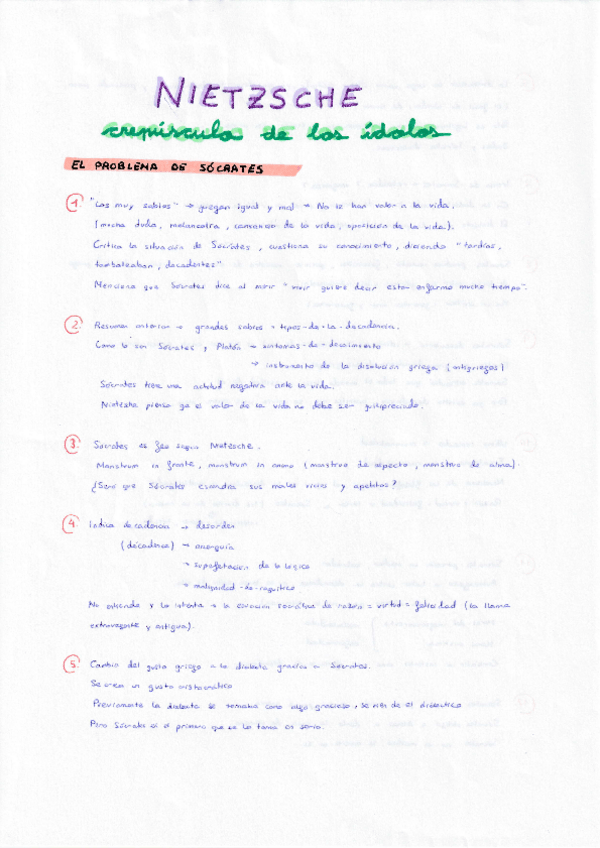 NIETZSCHE
crepúsculo de los ídolos
EL PROBLEMA DE SÓCRATES
1. "Los muy sabios" → juzgan igual y mal → No le han valor a la vida.
(mucha duda, melancolía, cansancio de la vida, oposición de la vida).
Critica la situación de Sócrates, cuestiona su conocimiento, diciendo "tardías,
tambaleaban, decadentes"
Menciona que Sócrates dice al morir "vivir quiere decir estar enfermo mucho tiempo".
2. Resumen anterior → grandes sabios = tipos-de-la-decadencia.
Como lo son Sócrates y Platón → síntomas-de-decaimiento
→ instrumento de la disolución griega (antigriegos)
Sócrates tiene una actitud negativa ante la vida.
Nietzsche piensa qe el valor de la vida no debe ser
3. Sócrates es feo según Nietzsche.
Monstrum in fronte, monstrum in animo (monstruo de aspecto, monstruo de alma).
¿Será que Sócrates escondía sus males vicios y apetitos?
4. Indica decadencia → desorden
(décadence) → anarquía
→ superfetación de lo lógico
→ malignidad-de-raquítico
No entiende y lo intenta → la ecuación socrática de razón = virtud = felicidad (La llama
extravagante y antigua).
5. Cambio del gusto griego a la dialéctica gracias a Sócrates.
Se crea un gusto aristocrático
Previamente la dialéctica se tomaba como algo gracioso, se ríen de el dialéctico
Pero Sócrates es el primero que se lo toma en serio.